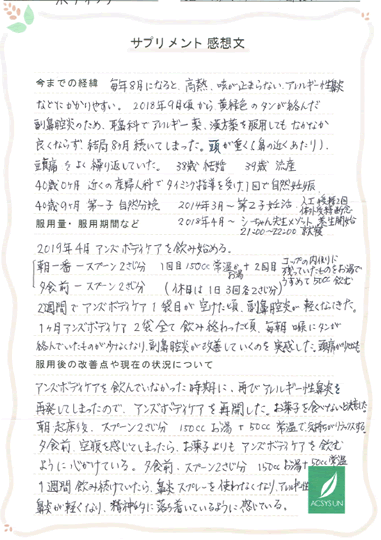 サプリメント 感想文
今までの経緯 毎年8月になると、高熱、咳が止まらない、アレルギー性鼻炎
などにかかりやすい。2018年9月頃から黄緑色のタンが絡んだ
副鼻腔炎のため、耳鼻科でアレルギー薬、漢方薬を服用してもなかなか
良くならず、結局8ヶ月続いてしまった。頭が重く(鼻の近くあたり)、
頭痛をよく繰り返していた。38歳 結婚 39歳 流産
40歳0ヶ月 近くの産婦人科でタイミング指導を受け1回で自然妊娠
40歳9ヶ月 第一子 自然分娩 2014年3月〜第二子妊活
服用量・服用期間など 2018年4月〜
21:00〜22:00 就寝
2019年4月 アンズボディケアを飲み始める。
朝一番 - スプーン2さじ分 1回目 150cc 常温 2回目 お湯
夕食前 - スプーン2さじ分 (休日は1日3回 各2さじ分)
うすめて 500cc 飲む
2週間でアンズボディケア1袋目が空けた頃、副鼻腔炎が軽くなってきた。
1ヶ月アンズボディケア2袋全て飲み終わった頃、毎朝喉にタンが
絡んでいたものが少なくなり、副鼻腔炎が改善していくのを実感した。
服用後の改善点や現在の状況について
アンズボディケアを飲んでいなかった時期に、再びアレルギー性鼻炎を
再発してしまったので、アンズボディケアを再開した。お菓子を食べない
朝起床後、スプーン2さじ分 150cc お湯 + 50cc 常温で
夕食前、空腹を感じてしまったら、お菓子よりもアンズボディケアを飲む
ように心がけている。夕食前 - スプーン2さじ分 150cc お湯 + 50cc 常温
1週間飲み続けていたら、鼻炎スプレーを使わなくなり、
鼻炎が軽くなり、精神的に落ち着いているように感じている。
ACSYSUN